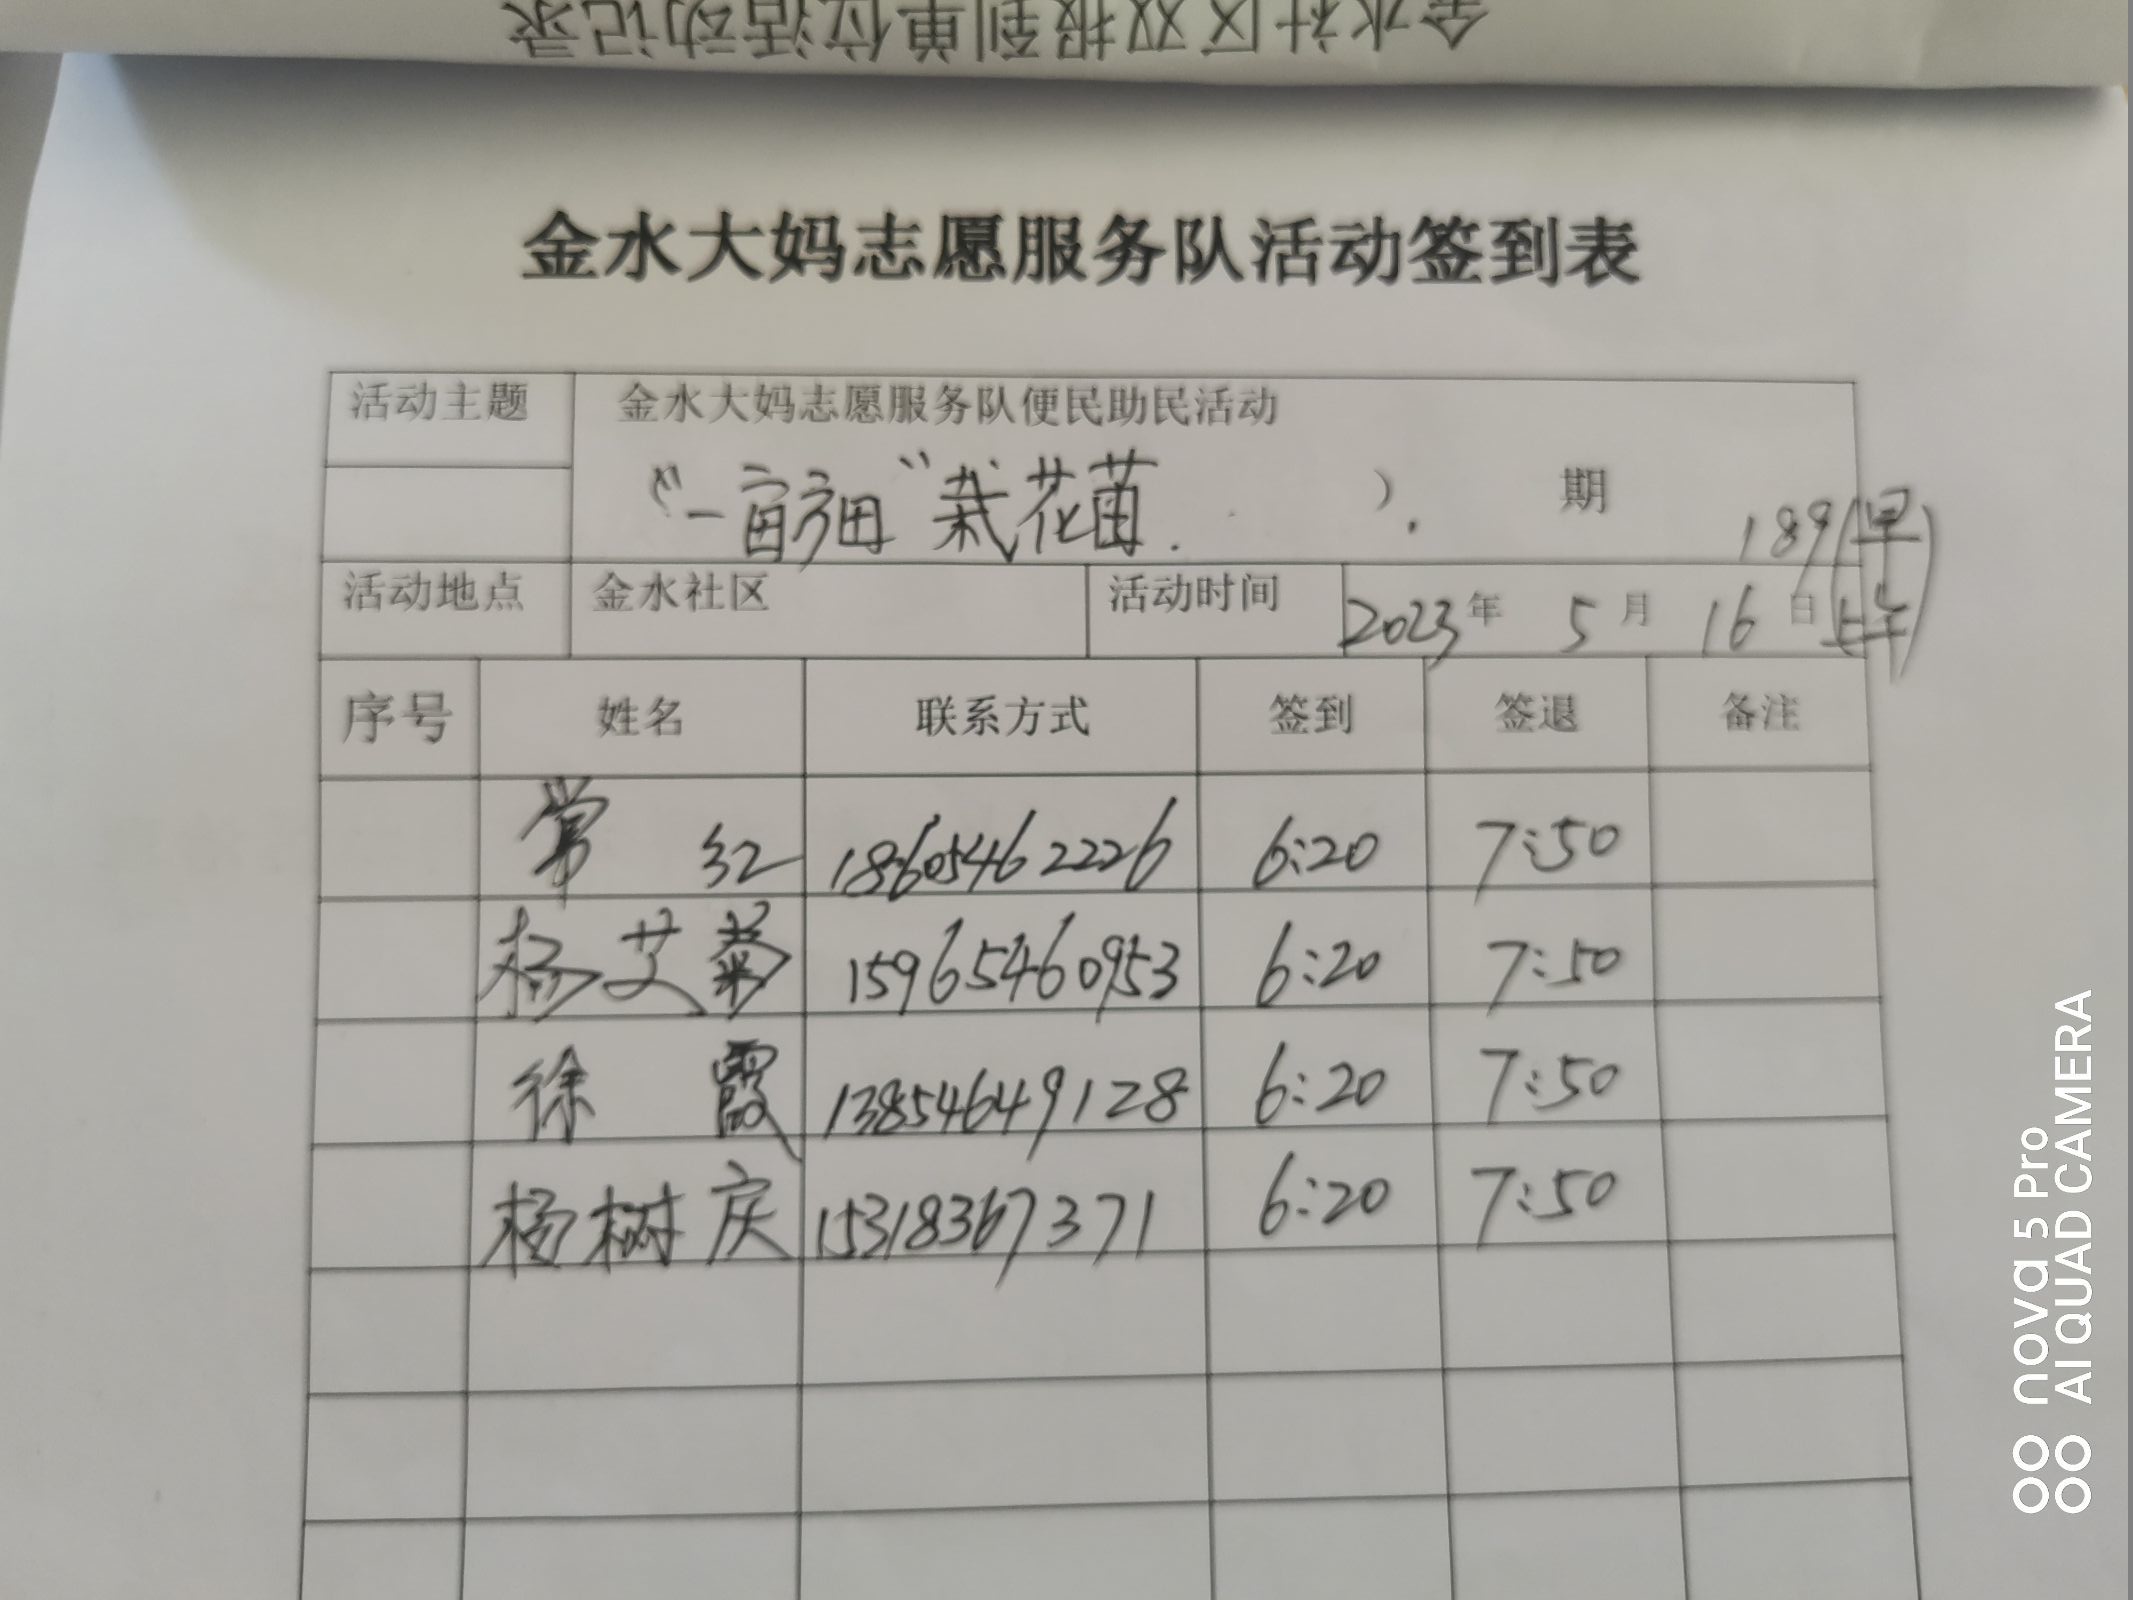 金水社区双报到单位活动记录
金水大妈志愿服务队活动签到表
活动主题 金水大妈志愿服务队便民助民活动
“一亩方田”栽花苗. ). 期 189(早
活动地点 金水社区 活动时间 2023年 5月 16日 上午)
序号 姓名 联系方式 签到 签退 备注
常红 18605462226 6:20 7:50
杨艾菊 15965460953 6:20 7:50
徐霞 13854649128 6:20 7:50
杨树庆 15318367371 6:20 7:50
nova 5 Pro
AI QUAD CAMERA